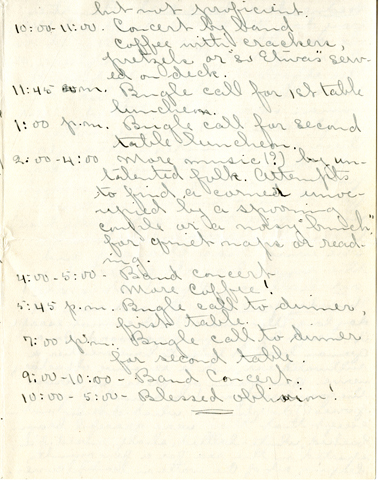 but not proficient.
10:00-11:00. Concert by band
coffee with crackers,
pretzels or "so Etwas" serv-
ed on deck.
11:45 a.m. Bugle call for 1st table
luncheon.
1:00 p.m. Bugle call for second
table luncheon.
2:00-4:00 More music (?) by un-
talented folk. Attempts
to find a corner unoc-
cupied by a spooning
couple or a noisy "bunch"
for quiet naps or read-
ing.
4:00-5:00 - Band concert
More coffee!
5:45 p.m. Bugle call to dinner,
first table.
7:00 p.m. Bugle call to dinner
for second table.
9:00-10:00 - Band Concert.
10:00 - 5:00 - Blessed oblivion!